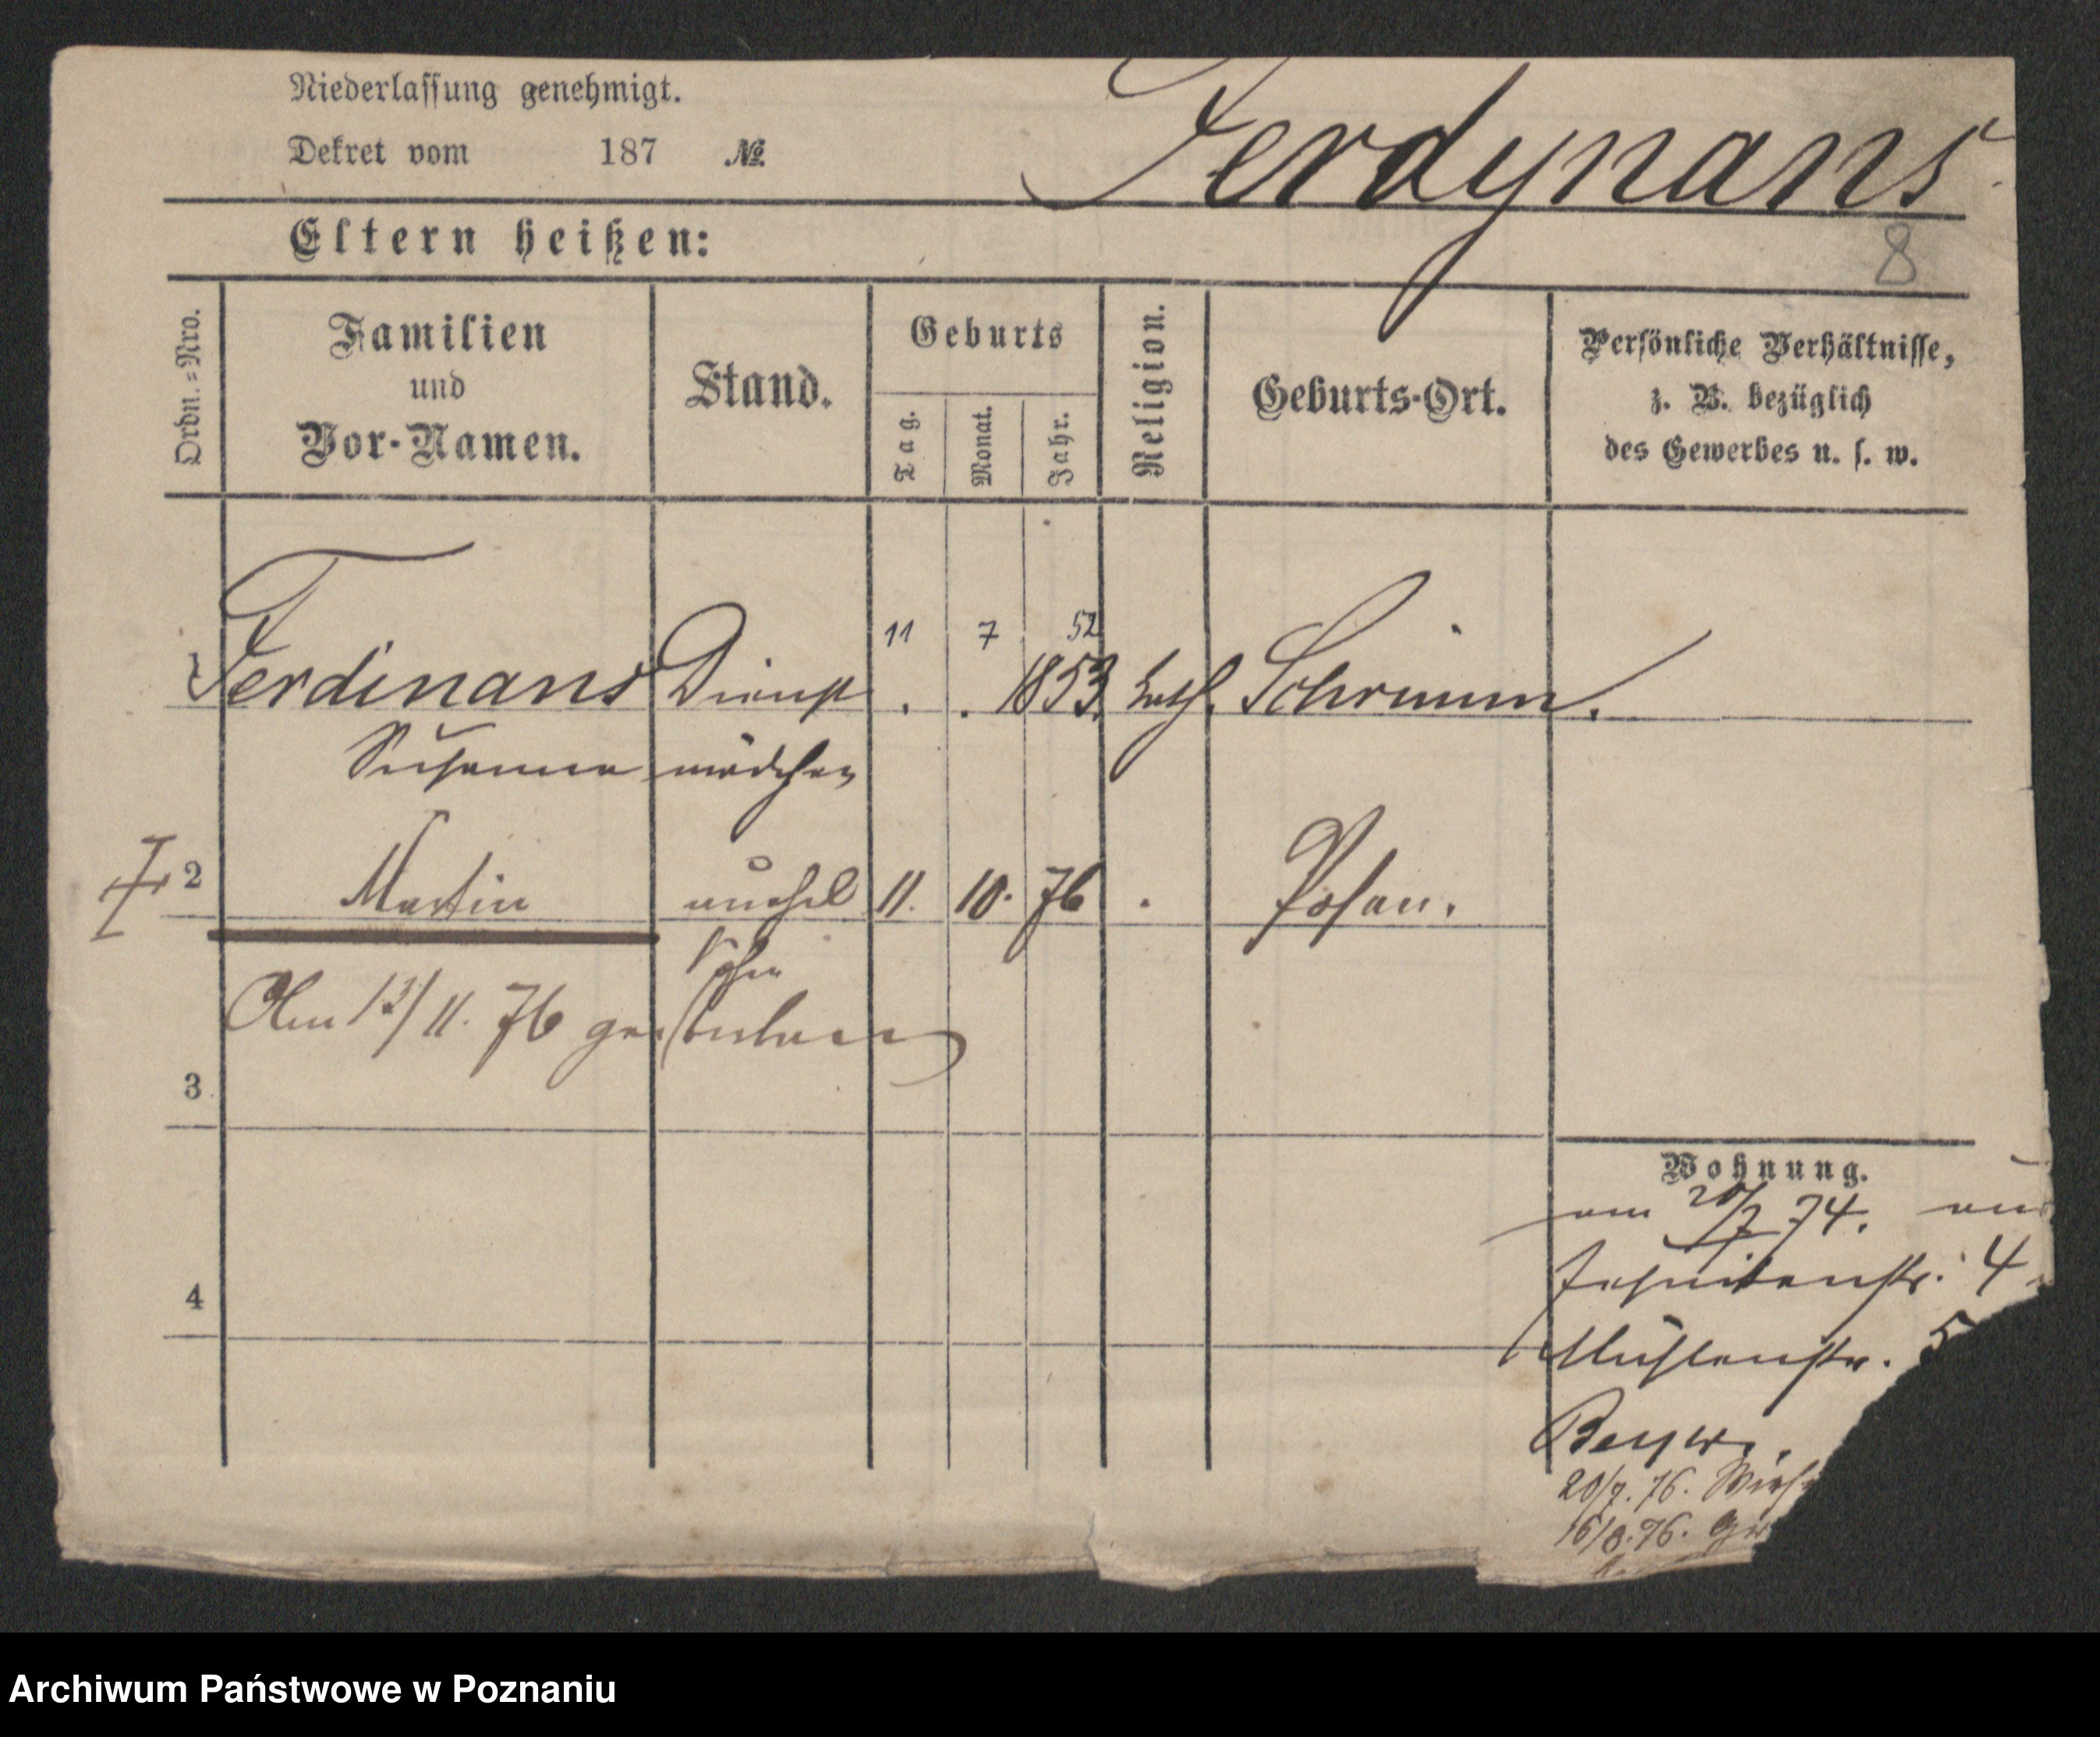 Niederlassung genehmigt.
Dekret vom 187 №
Ferdynans
Eltern heißen:
8
Ordn.=Nro.
Familien
und
Vor-Namen.
Stand.
Geburts
Tag.
Monat.
Jahr.
Religion.
Geburts-Ort.
Persönliche Verhältnisse,
z. B. bezüglich
des Gewerbes u. s. w.
11 7 52
1 Ferdinans Dienst . . 1853. kath. Schrimm.
Susanna mädchen
2 Martin unehel 11. 10. 76 . Posen.
Sohn
Am 13/11. 76 gestorben
3
4
Wohnung.
am 20/7 74. aus
Jesuitenstr. 4
Mühlenstr. 5
20/7. 76.
16/8. 76.
Archiwum Państwowe w Poznaniu